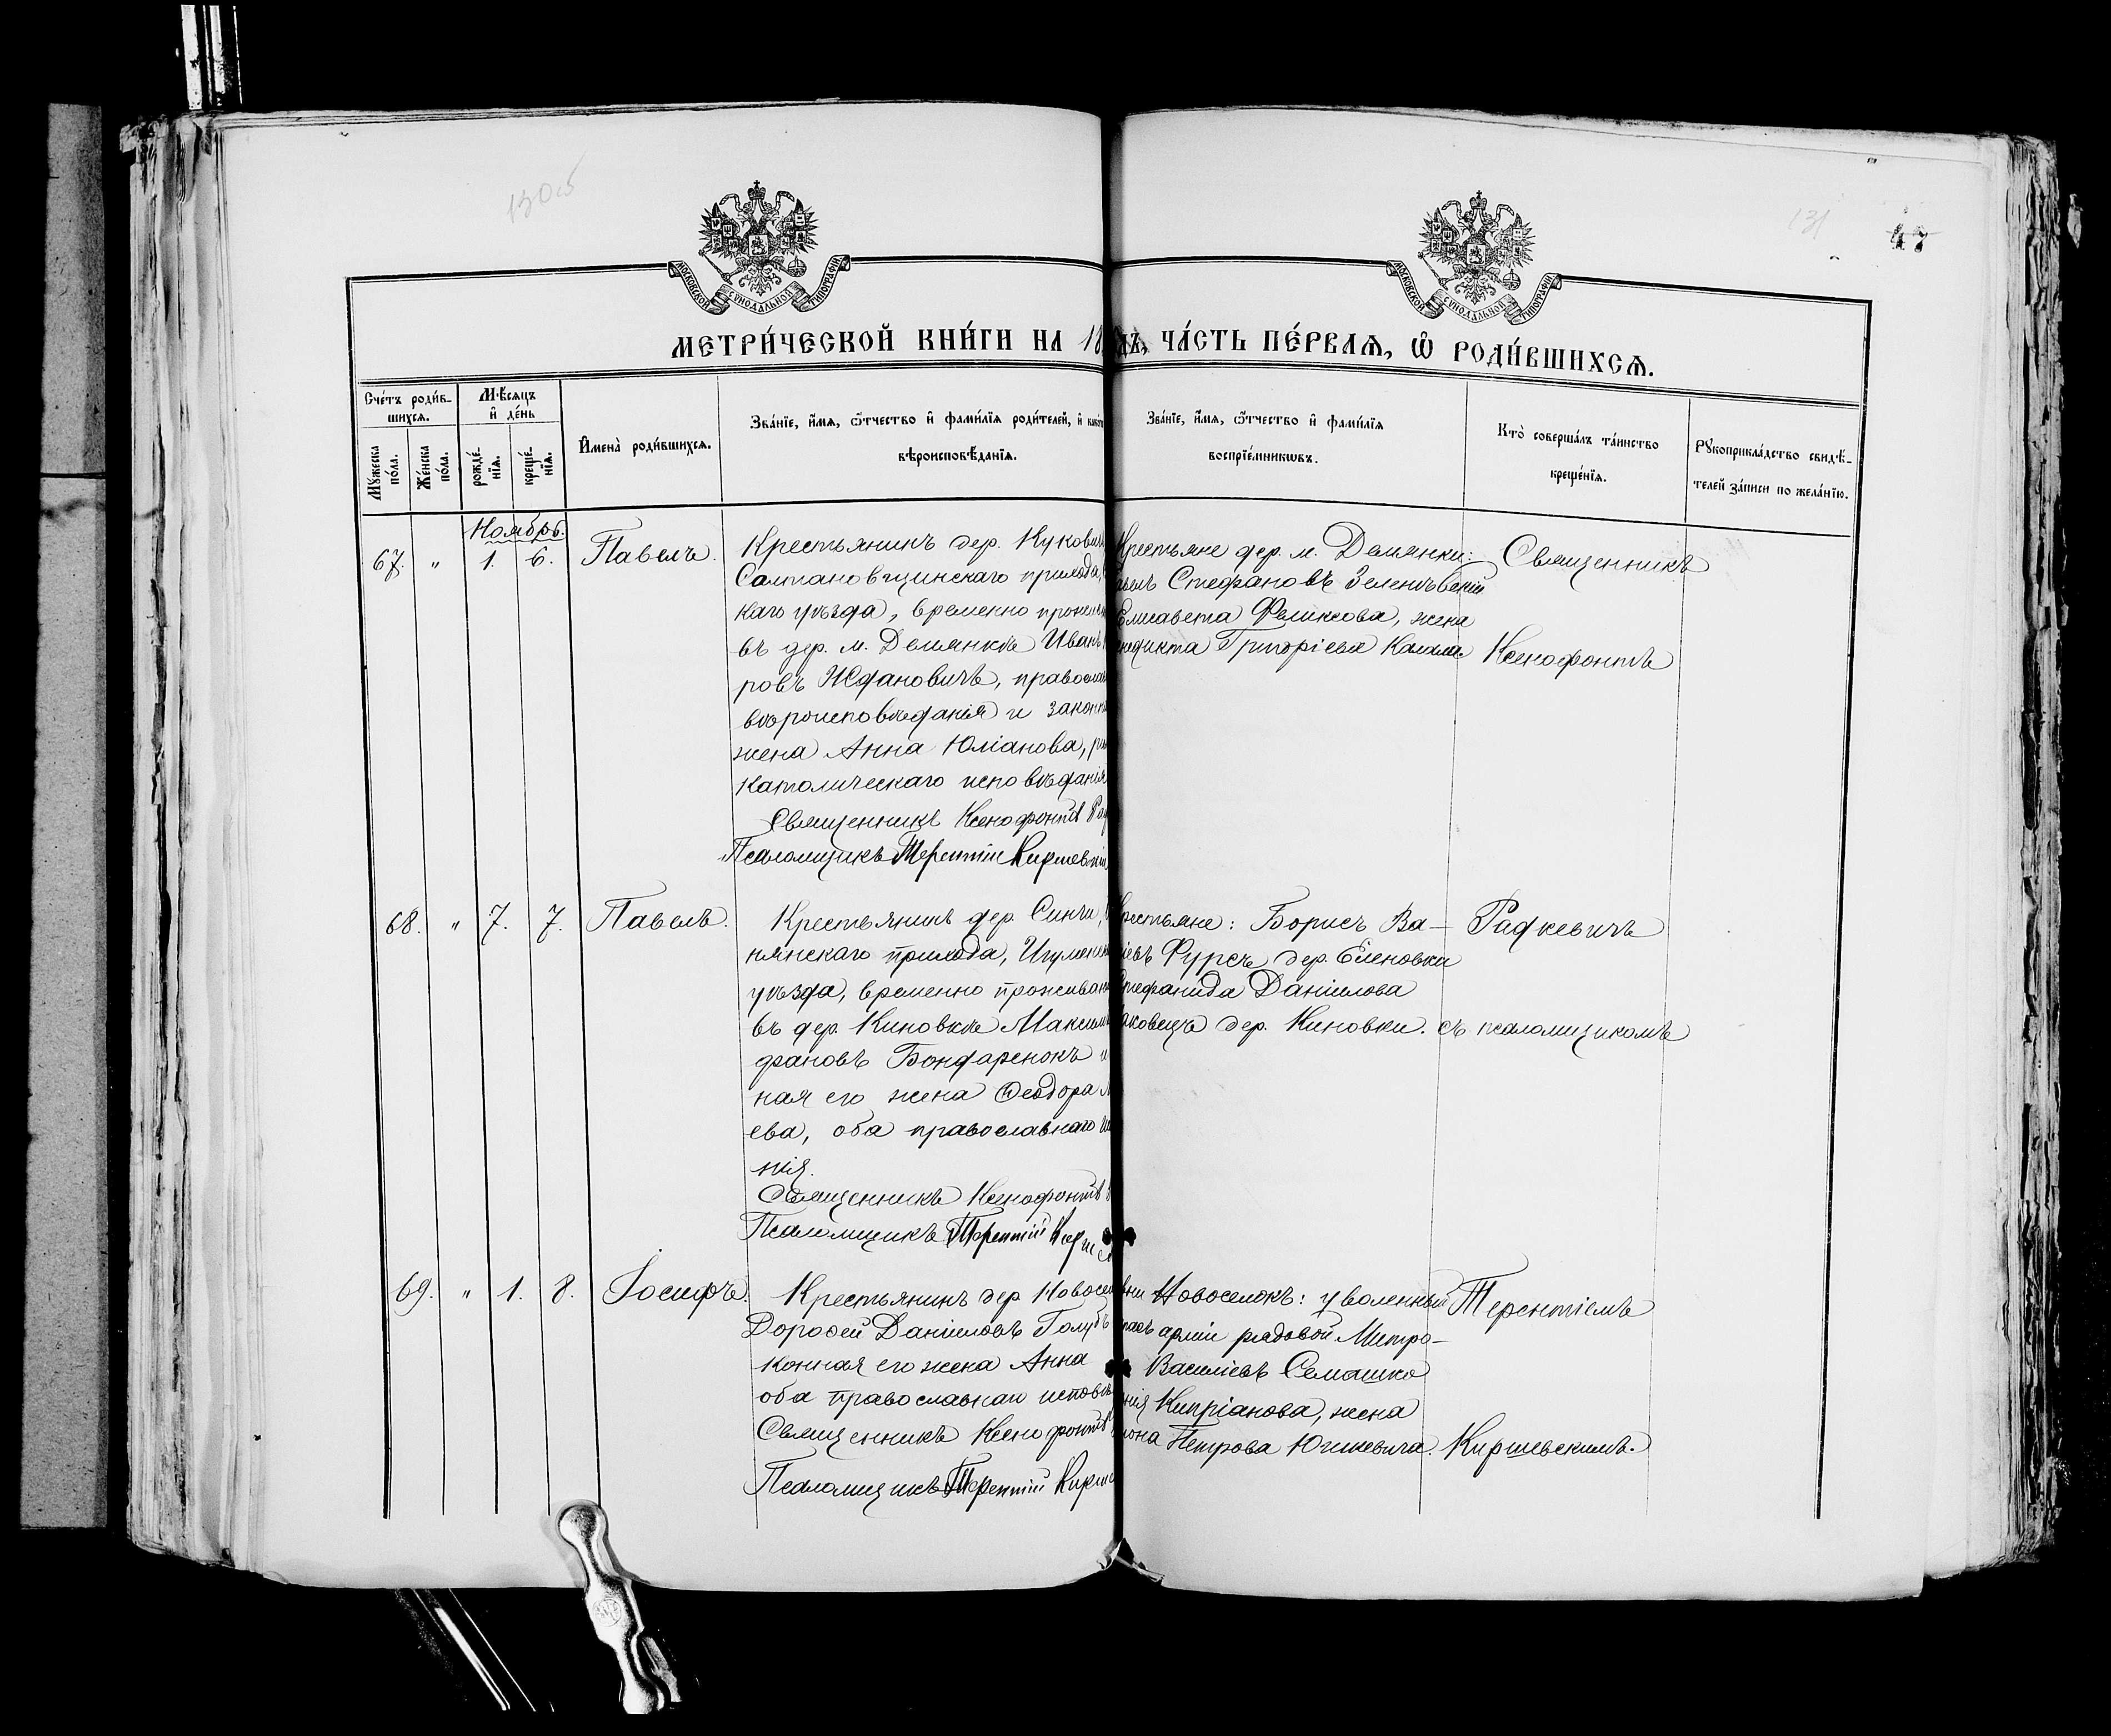 130об
131
47
МОСКОВСКОЙ СѴНОДАЛЬНОЙ ТИПОГРАФІИ
МОСКОВСКОЙ СѴНОДАЛЬНОЙ ТИПОГРАФІИ
МЕТРИ́ЧЕСКОЙ КНИ́ГИ НА 18
ДЪ, ЧА́СТЬ ПЕ́РВАѦ, Ѡ҆ РОДИ́ВШИХСѦ.
Сче́тъ роди́в-
шихсѧ.
Мѣ́сѧцъ
и҆ де́нь
Мꙋ́жеска
по́ла.
Же́нска
по́ла.
рожде́-
нїѧ.
креще́-
нїѧ.
И҆мена̀ роди́вшихсѧ.
Зва́нїе, и҆́мѧ, ѻ҆́тчество и҆ фами́лїѧ роди́телей, и҆
вѣроисповѣ́данїѧ.
Зва́нїе, и҆́мѧ, ѻ҆́тчество и҆ фами́лїѧ
воспрїе́мникѡвъ.
Кто̀ соверша́лъ та́инство
креще́нїѧ.
Рꙋкоприкла́дство свидѣ́-
телей за́писи по жела́нїю.
Ноябрь.
67. " 1. 6. Павелъ.
Крестьянинъ дер. Кукови
Салтановщинскаго прихода,
каго уѣзда, временно прожив
въ дер. м. Демянкѣ Иванъ
ровъ Ждановичъ, православ
вѣроисповѣданія и законн
жена Анна Юліанова, ри
католическаго исповѣданія
Священникъ Ксенофонтъ Рад
Псаломщикъ Терентій Киршевскій
Крестьяне дер. м. Демянки:
Стефановъ Зеленевскій
Елисавета Феликсова, жена
недикта Григоріева
Священникъ
Ксенофонтъ
68. " 7. 7. Павелъ.
Крестьянинъ дер. Синчи,
нянскаго прихода, Игуменск
уѣзда, временно проживаю
въ дер. Киновкѣ Максимъ
фановъ Бондаренокъ и
ная его жена Ѳеодора
ева, оба православнаго
нія.
Священникъ Ксенофонтъ
Псаломщикъ Терентій Кирше
рестьяне: Борисъ Ва-
іевъ Фурсъ дер. Еленовки
Стефанида Даніилова
аковецъ дер. Киновки.
Радкевичъ
съ псаломщикомъ
69. " 1. 8. Іосифъ.
Крестьянинъ дер. Новосе
Дороѳей Даніиловъ Голубъ
конная его жена Анна
оба православнаго исповѣ
Священникъ Ксенофонтъ
Псаломщикъ Терентій Кирше
Новоселокъ: уволенный
арміи рядовой Митро-
Василіевъ Семашко
нія Кипріанова, жена
Петрова Юшкевича.
Терентіемъ
Киршевскимъ.